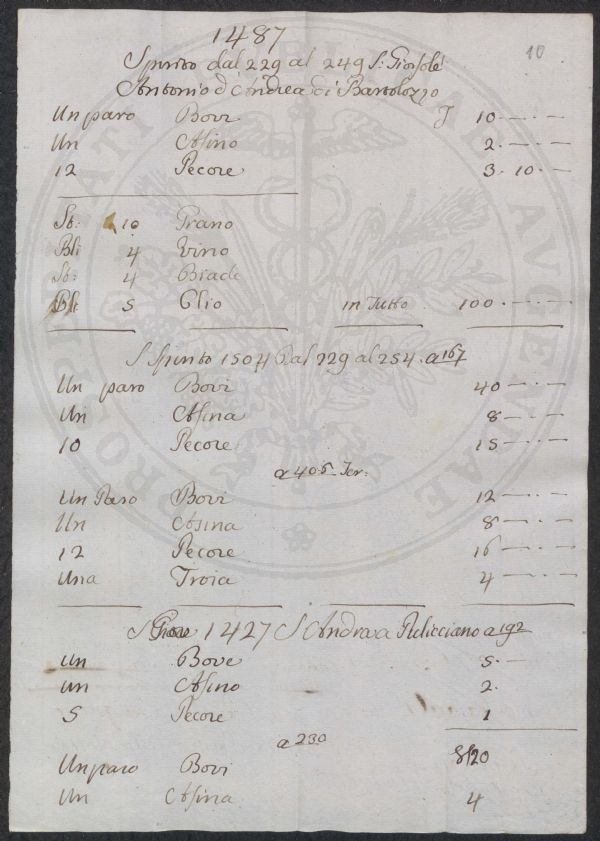 1487
10
Spirito dal 229 al 249 S:
Antonio d'Andrea di Bartolozzo
Un paro Bovi 10.—.—
Un Asino 2.—.—
12 Pecore 3.10.—
St: 10 Grano
Bli 4 Vino
St: 4 Biade
Bli 5 Olio in Tutto 100.—.—
S Spirito 1504 dal 229 al 254. a 167
Un paro Bovi 40—.—
Un Asina 8—.—
10 Pecore 15—.—
a 406 Ter:
Un Paro Bovi 12—.—
Un Asina 8—.—
12 Pecore 16—.—
Una Troia 4—.—
S 1427 S Andrea a a 192
Un Bove 5.—
un Asino 2.
5 Pecore 1
a 230
Un paro Bovi 20
Un Asina 4
PROSPERITATI PUBLICAE AUGENDAE